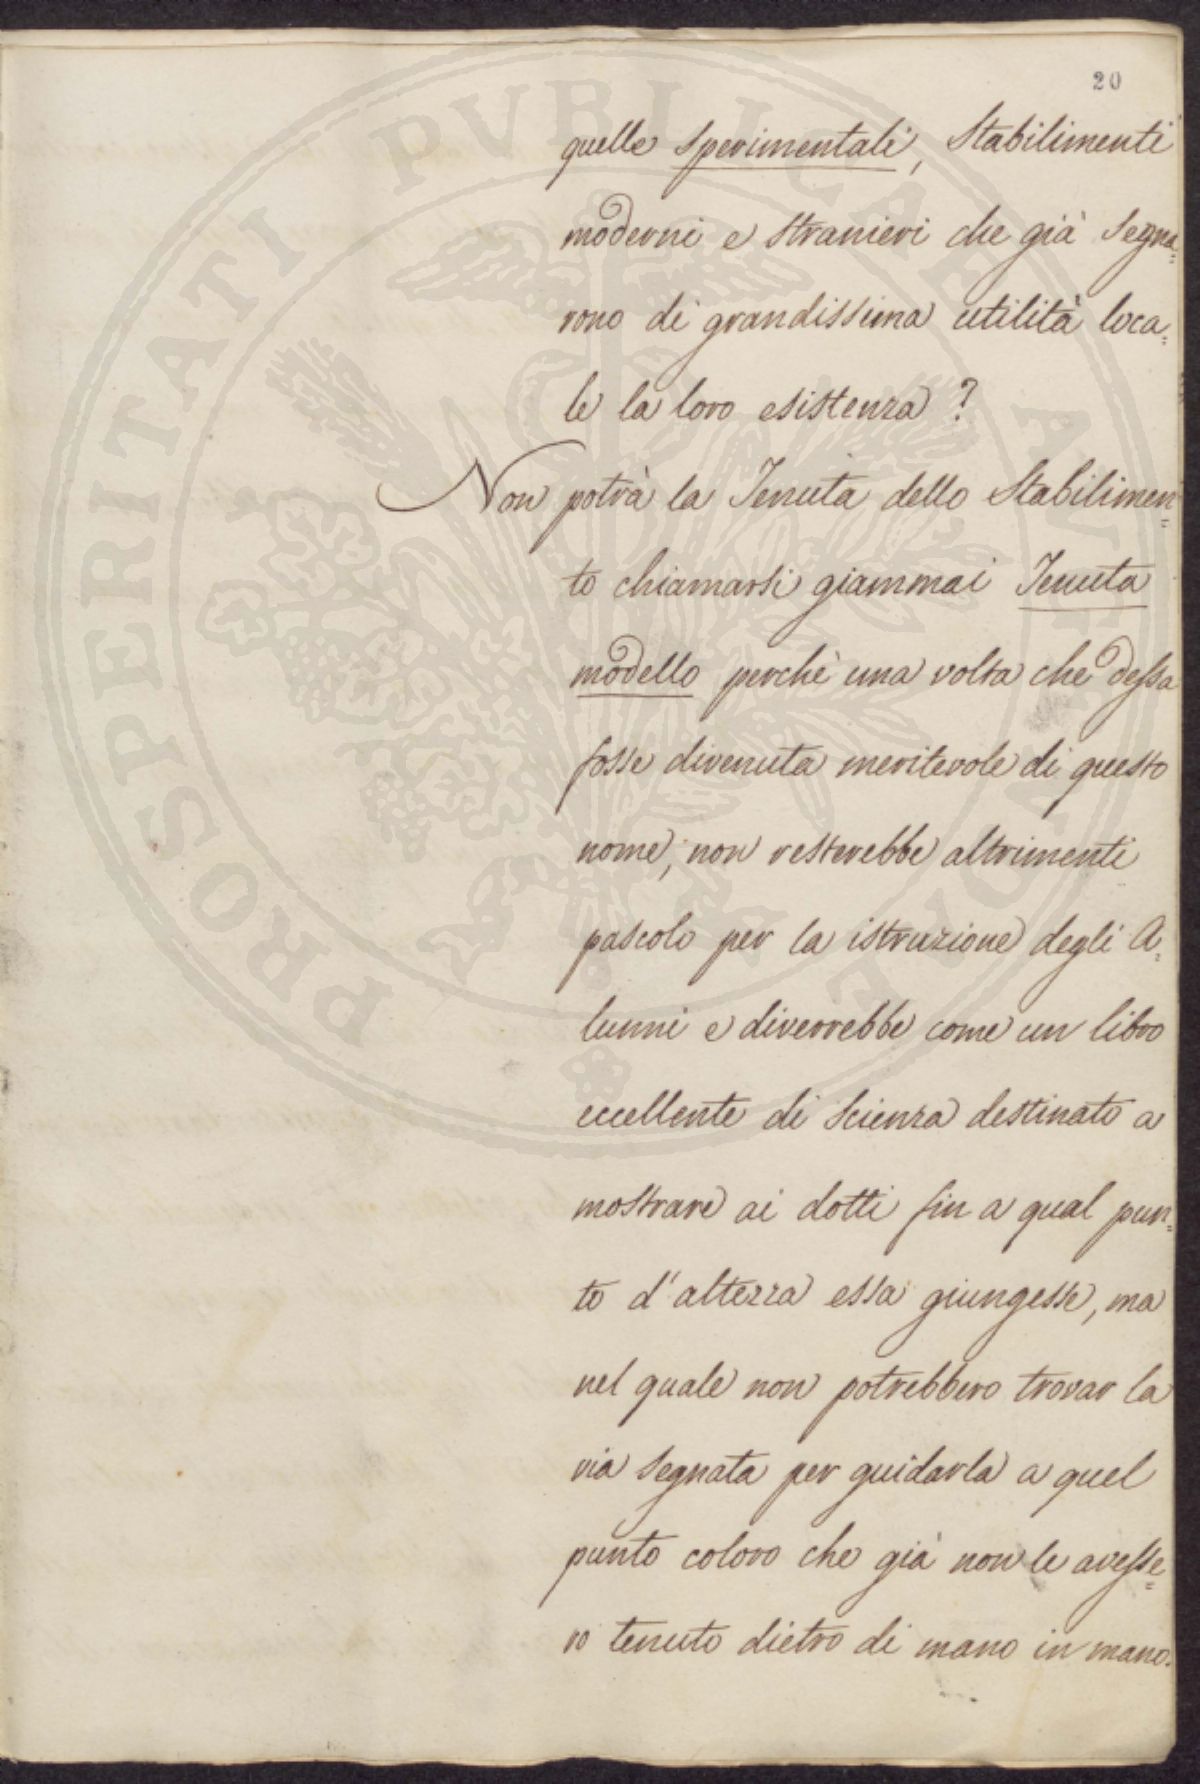 20
quelle sperimentali, Stabilimenti
moderni e stranieri che già segna=
rono di grandissima utilità loca=
le la loro esistenza?
Non potrà la Tenuta dello Stabilimen=
to chiamarsi giammai Tenuta
modello perchè una volta che dessa
fosse divenuta meritevole di questo
nome, non resterebbe altrimenti
pascolo per la istruzione degli A=
lunni e diverrebbe come un libro
eccellente di scienza destinato a
mostrare ai dotti fin a qual pun=
to d'altezza essa giungesse, ma
nel quale non potrebbero trovar la
via segnata per guidarla a quel
punto coloro che già non le avesse=
ro tenuto dietro di mano in mano.
PROSPERITATI PVBLICAE AVGENDAE